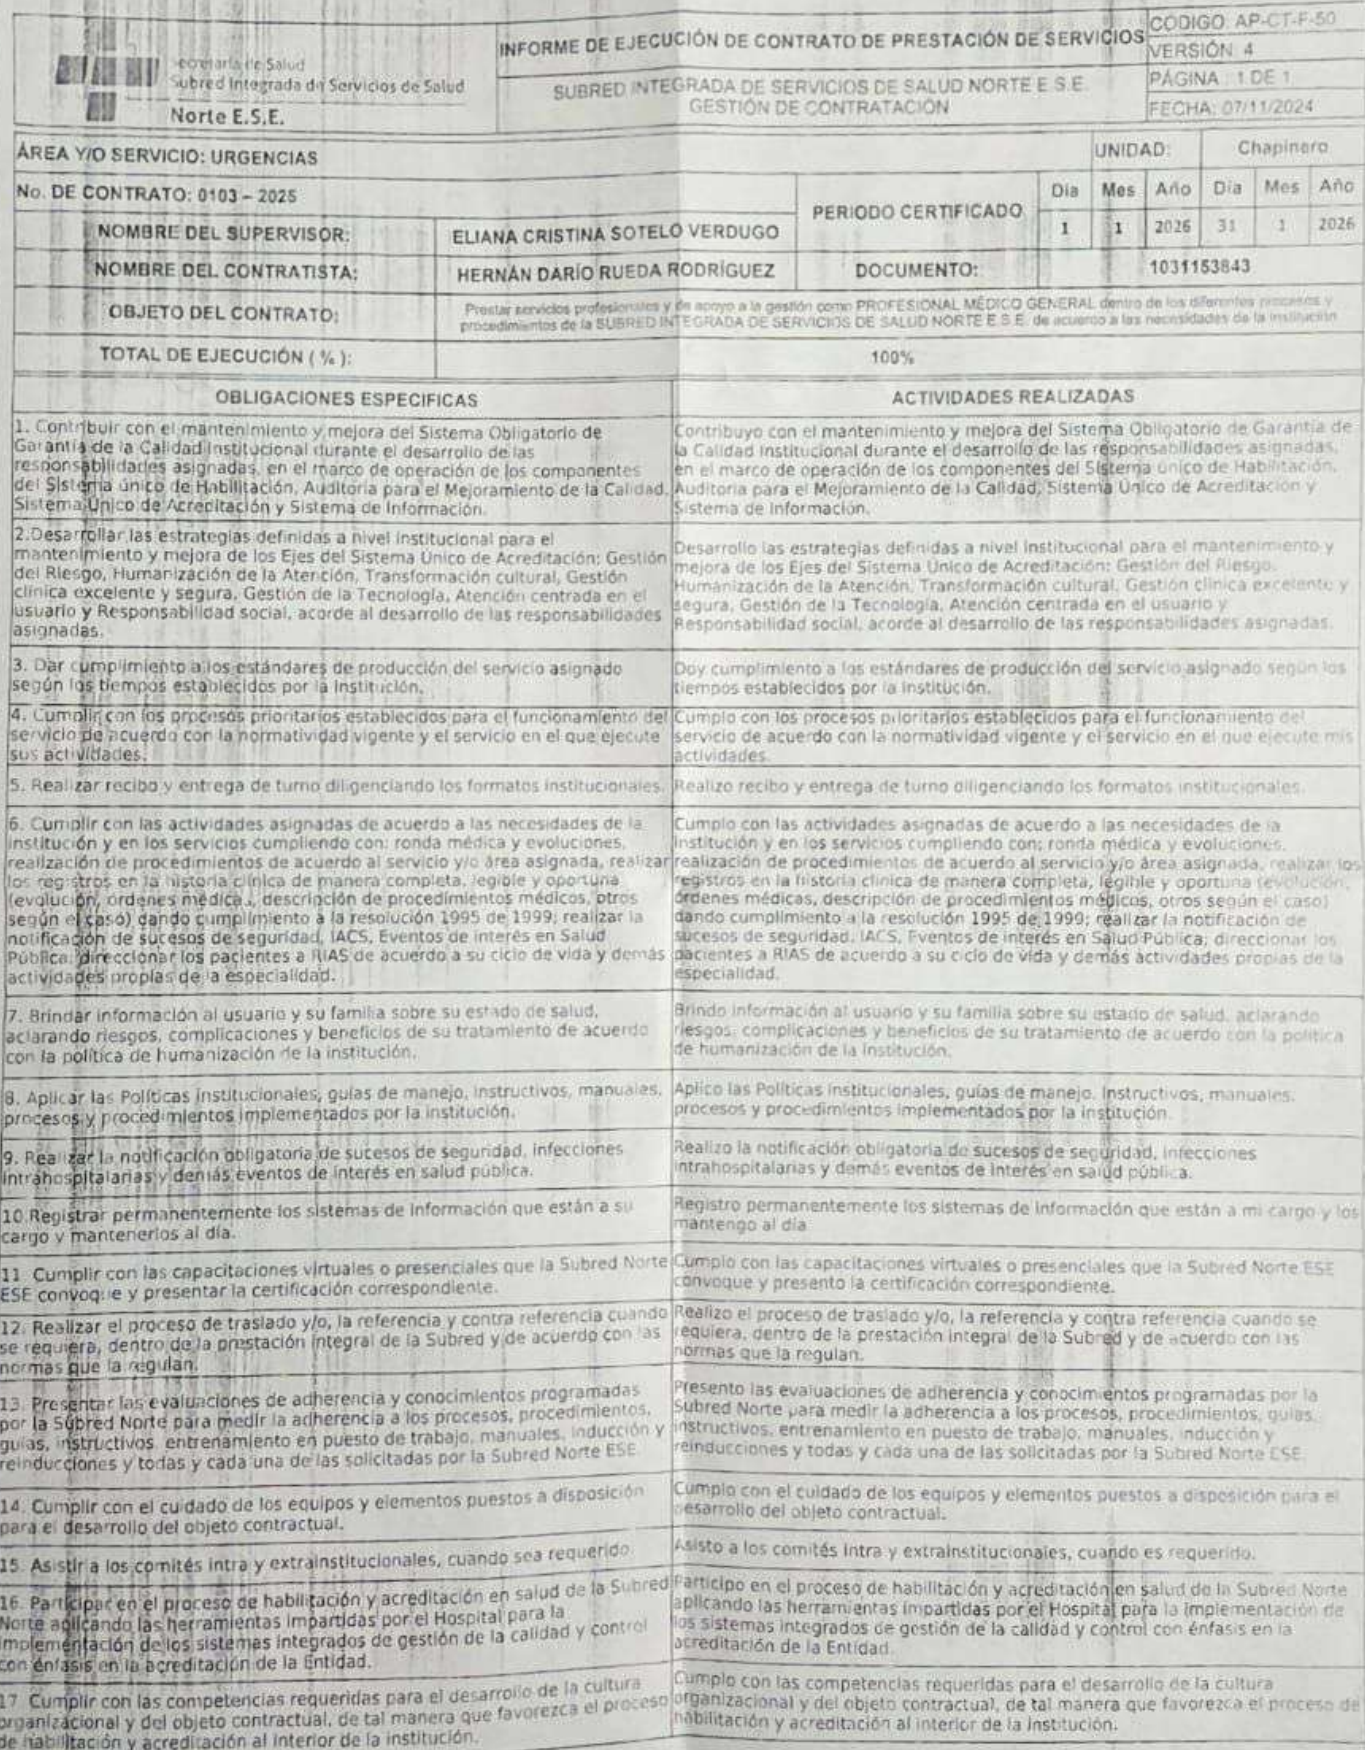 Secretaría de Salud
Subred Integrada de Servicios de Salud
Norte E.S.E.
INFORME DE EJECUCIÓN DE CONTRATO DE PRESTACIÓN DE SERVICIOS
SUBRED INTEGRADA DE SERVICIOS DE SALUD NORTE E.S.E.
GESTIÓN DE CONTRATACIÓN
CÓDIGO: AP-CT-F-50
VERSIÓN: 4
PÁGINA : 1 DE 1
FECHA: 07/11/2024
ÁREA Y/O SERVICIO: URGENCIAS
UNIDAD: Chapinero
No. DE CONTRATO: 0103 – 2025
PERIODO CERTIFICADO
Día Mes Año Día Mes Año
1 1 2026 31 1 2026
NOMBRE DEL SUPERVISOR: ELIANA CRISTINA SOTELO VERDUGO
NOMBRE DEL CONTRATISTA: HERNÁN DARÍO RUEDA RODRÍGUEZ DOCUMENTO: 1031153843
OBJETO DEL CONTRATO:
Prestar servicios profesionales y de apoyo a la gestión como PROFESIONAL MÉDICO GENERAL dentro de los diferentes procesos y
procedimientos de la SUBRED INTEGRADA DE SERVICIOS DE SALUD NORTE E.S.E. de acuerdo a las necesidades de la institución
TOTAL DE EJECUCIÓN ( % ): 100%
OBLIGACIONES ESPECIFICAS
ACTIVIDADES REALIZADAS
1. Contribuir con el mantenimiento y mejora del Sistema Obligatorio de
Garantía de la Calidad Institucional durante el desarrollo de las
responsabilidades asignadas, en el marco de operación de los componentes
del Sistema único de Habilitación, Auditoria para el Mejoramiento de la Calidad,
Sistema Único de Acreditación y Sistema de Información.
Contribuyo con el mantenimiento y mejora del Sistema Obligatorio de Garantía de
la Calidad Institucional durante el desarrollo de las responsabilidades asignadas,
en el marco de operación de los componentes del Sistema único de Habilitación,
Auditoria para el Mejoramiento de la Calidad, Sistema Único de Acreditación y
Sistema de Información.
2.Desarrollar las estrategias definidas a nivel institucional para el
mantenimiento y mejora de los Ejes del Sistema Único de Acreditación: Gestión
del Riesgo, Humanización de la Atención, Transformación cultural, Gestión
clínica excelente y segura, Gestión de la Tecnología, Atención centrada en el
usuario y Responsabilidad social, acorde al desarrollo de las responsabilidades
asignadas.
Desarrollo las estrategias definidas a nivel institucional para el mantenimiento y
mejora de los Ejes del Sistema Único de Acreditación: Gestión del Riesgo,
Humanización de la Atención, Transformación cultural, Gestión clínica excelente y
segura, Gestión de la Tecnología, Atención centrada en el usuario y
Responsabilidad social, acorde al desarrollo de las responsabilidades asignadas.
3. Dar cumplimiento a los estándares de producción del servicio asignado
según los tiempos establecidos por la Institución.
Doy cumplimiento a los estándares de producción del servicio asignado según los
tiempos establecidos por la Institución.
4. Cumplir con los procesos prioritarios establecidos para el funcionamiento del
servicio de acuerdo con la normatividad vigente y el servicio en el que ejecute
sus actividades.
Cumplo con los procesos prioritarios establecidos para el funcionamiento del
servicio de acuerdo con la normatividad vigente y el servicio en el que ejecute mis
actividades.
5. Realizar recibo y entrega de turno diligenciando los formatos institucionales.
Realizo recibo y entrega de turno diligenciando los formatos institucionales.
6. Cumplir con las actividades asignadas de acuerdo a las necesidades de la
institución y en los servicios cumpliendo con: ronda médica y evoluciones,
realización de procedimientos de acuerdo al servicio y/o área asignada, realizar
los registros en la historia clínica de manera completa, legible y oportuna
(evolución, órdenes médicas, descripción de procedimientos médicos, otros
según el caso) dando cumplimiento a la resolución 1995 de 1999; realizar la
notificación de sucesos de seguridad, IACS, Eventos de interés en Salud
Pública; direccionar los pacientes a RIAS de acuerdo a su ciclo de vida y demás
actividades propias de la especialidad.
Cumplo con las actividades asignadas de acuerdo a las necesidades de la
Institución y en los servicios cumpliendo con; ronda médica y evoluciones,
realización de procedimientos de acuerdo al servicio y/o área asignada, realizar los
registros en la historia clínica de manera completa, légible y oportuna (evolución,
órdenes médicas, descripción de procedimientos médicos, otros según el caso)
dando cumplimiento a la resolución 1995 de 1999; realizar la notificación de
sucesos de seguridad, IACS, Eventos de interés en Salud Pública; direccionar los
pacientes a RIAS de acuerdo a su ciclo de vida y demás actividades propias de la
especialidad.
7. Brindar información al usuario y su familia sobre su estado de salud,
aclarando riesgos, complicaciones y beneficios de su tratamiento de acuerdo
con la política de humanización de la institución.
Brindo información al usuario y su familia sobre su estado de salud, aclarando
riesgos, complicaciones y beneficios de su tratamiento de acuerdo con la política
de humanización de la Institución.
8. Aplicar las Políticas institucionales, guías de manejo, instructivos, manuales,
procesos y procedimientos implementados por la institución.
Aplico las Políticas institucionales, guías de manejo, Instructivos, manuales,
procesos y procedimientos implementados por la institución.
9. Realizar la notificación obligatoria de sucesos de seguridad, infecciones
intrahospitalarias y demás eventos de interés en salud pública.
Realizo la notificación obligatoria de sucesos de seguridad, infecciones
intrahospitalarias y demás eventos de interés en salud pública.
10.Registrar permanentemente los sistemas de información que están a su
cargo y mantenerlos al día.
Registro permanentemente los sistemas de información que están a mi cargo y los
mantengo al día
11. Cumplir con las capacitaciones virtuales o presenciales que la Subred Norte
ESE convoque y presentar la certificación correspondiente.
Cumplo con las capacitaciones virtuales o presenciales que la Subred Norte ESE
convoque y presento la certificación correspondiente.
12. Realizar el proceso de traslado y/o, la referencia y contra referencia cuando
se requiera, dentro de la prestación integral de la Subred y de acuerdo con las
normas que la regulan.
Realizo el proceso de traslado y/o, la referencia y contra referencia cuando se
requiera, dentro de la prestación integral de la Subred y de acuerdo con las
normas que la regulan.
13. Presentar las evaluaciones de adherencia y conocimientos programadas
por la Subred Norte para medir la adherencia a los procesos, procedimientos,
guías, instructivos, entrenamiento en puesto de trabajo, manuales, inducción y
reinducciones y todas y cada una de las solicitadas por la Subred Norte ESE.
Presento las evaluaciones de adherencia y conocimientos programadas por la
Subred Norte para medir la adherencia a los procesos, procedimientos, guías,
instructivos, entrenamiento en puesto de trabajo, manuales, inducción y
reinducciones y todas y cada una de las solicitadas por la Subred Norte ESE.
14. Cumplir con el cuidado de los equipos y elementos puestos a disposición
para el desarrollo del objeto contractual.
Cumplo con el cuidado de los equipos y elementos puestos a disposición para el
desarrollo del objeto contractual.
15. Asistir a los comités intra y extrainstitucionales, cuando sea requerido.
Asisto a los comités intra y extrainstitucionales, cuando es requerido.
16. Participar en el proceso de habilitación y acreditación en salud de la Subred
Norte aplicando las herramientas impartidas por el Hospital para la
implementación de los sistemas integrados de gestión de la calidad y control
con énfasis en la acreditación de la Entidad.
Participo en el proceso de habilitación y acreditación en salud de la Subred Norte
aplicando las herramientas impartidas por el Hospital para la implementación de
los sistemas integrados de gestión de la calidad y control con énfasis en la
acreditación de la Entidad.
17. Cumplir con las competencias requeridas para el desarrollo de la cultura
organizacional y del objeto contractual, de tal manera que favorezca el proceso
de habilitación y acreditación al interior de la institución.
Cumplo con las competencias requeridas para el desarrollo de la cultura
organizacional y del objeto contractual, de tal manera que favorezca el proceso de
habilitación y acreditación al interior de la Institución.